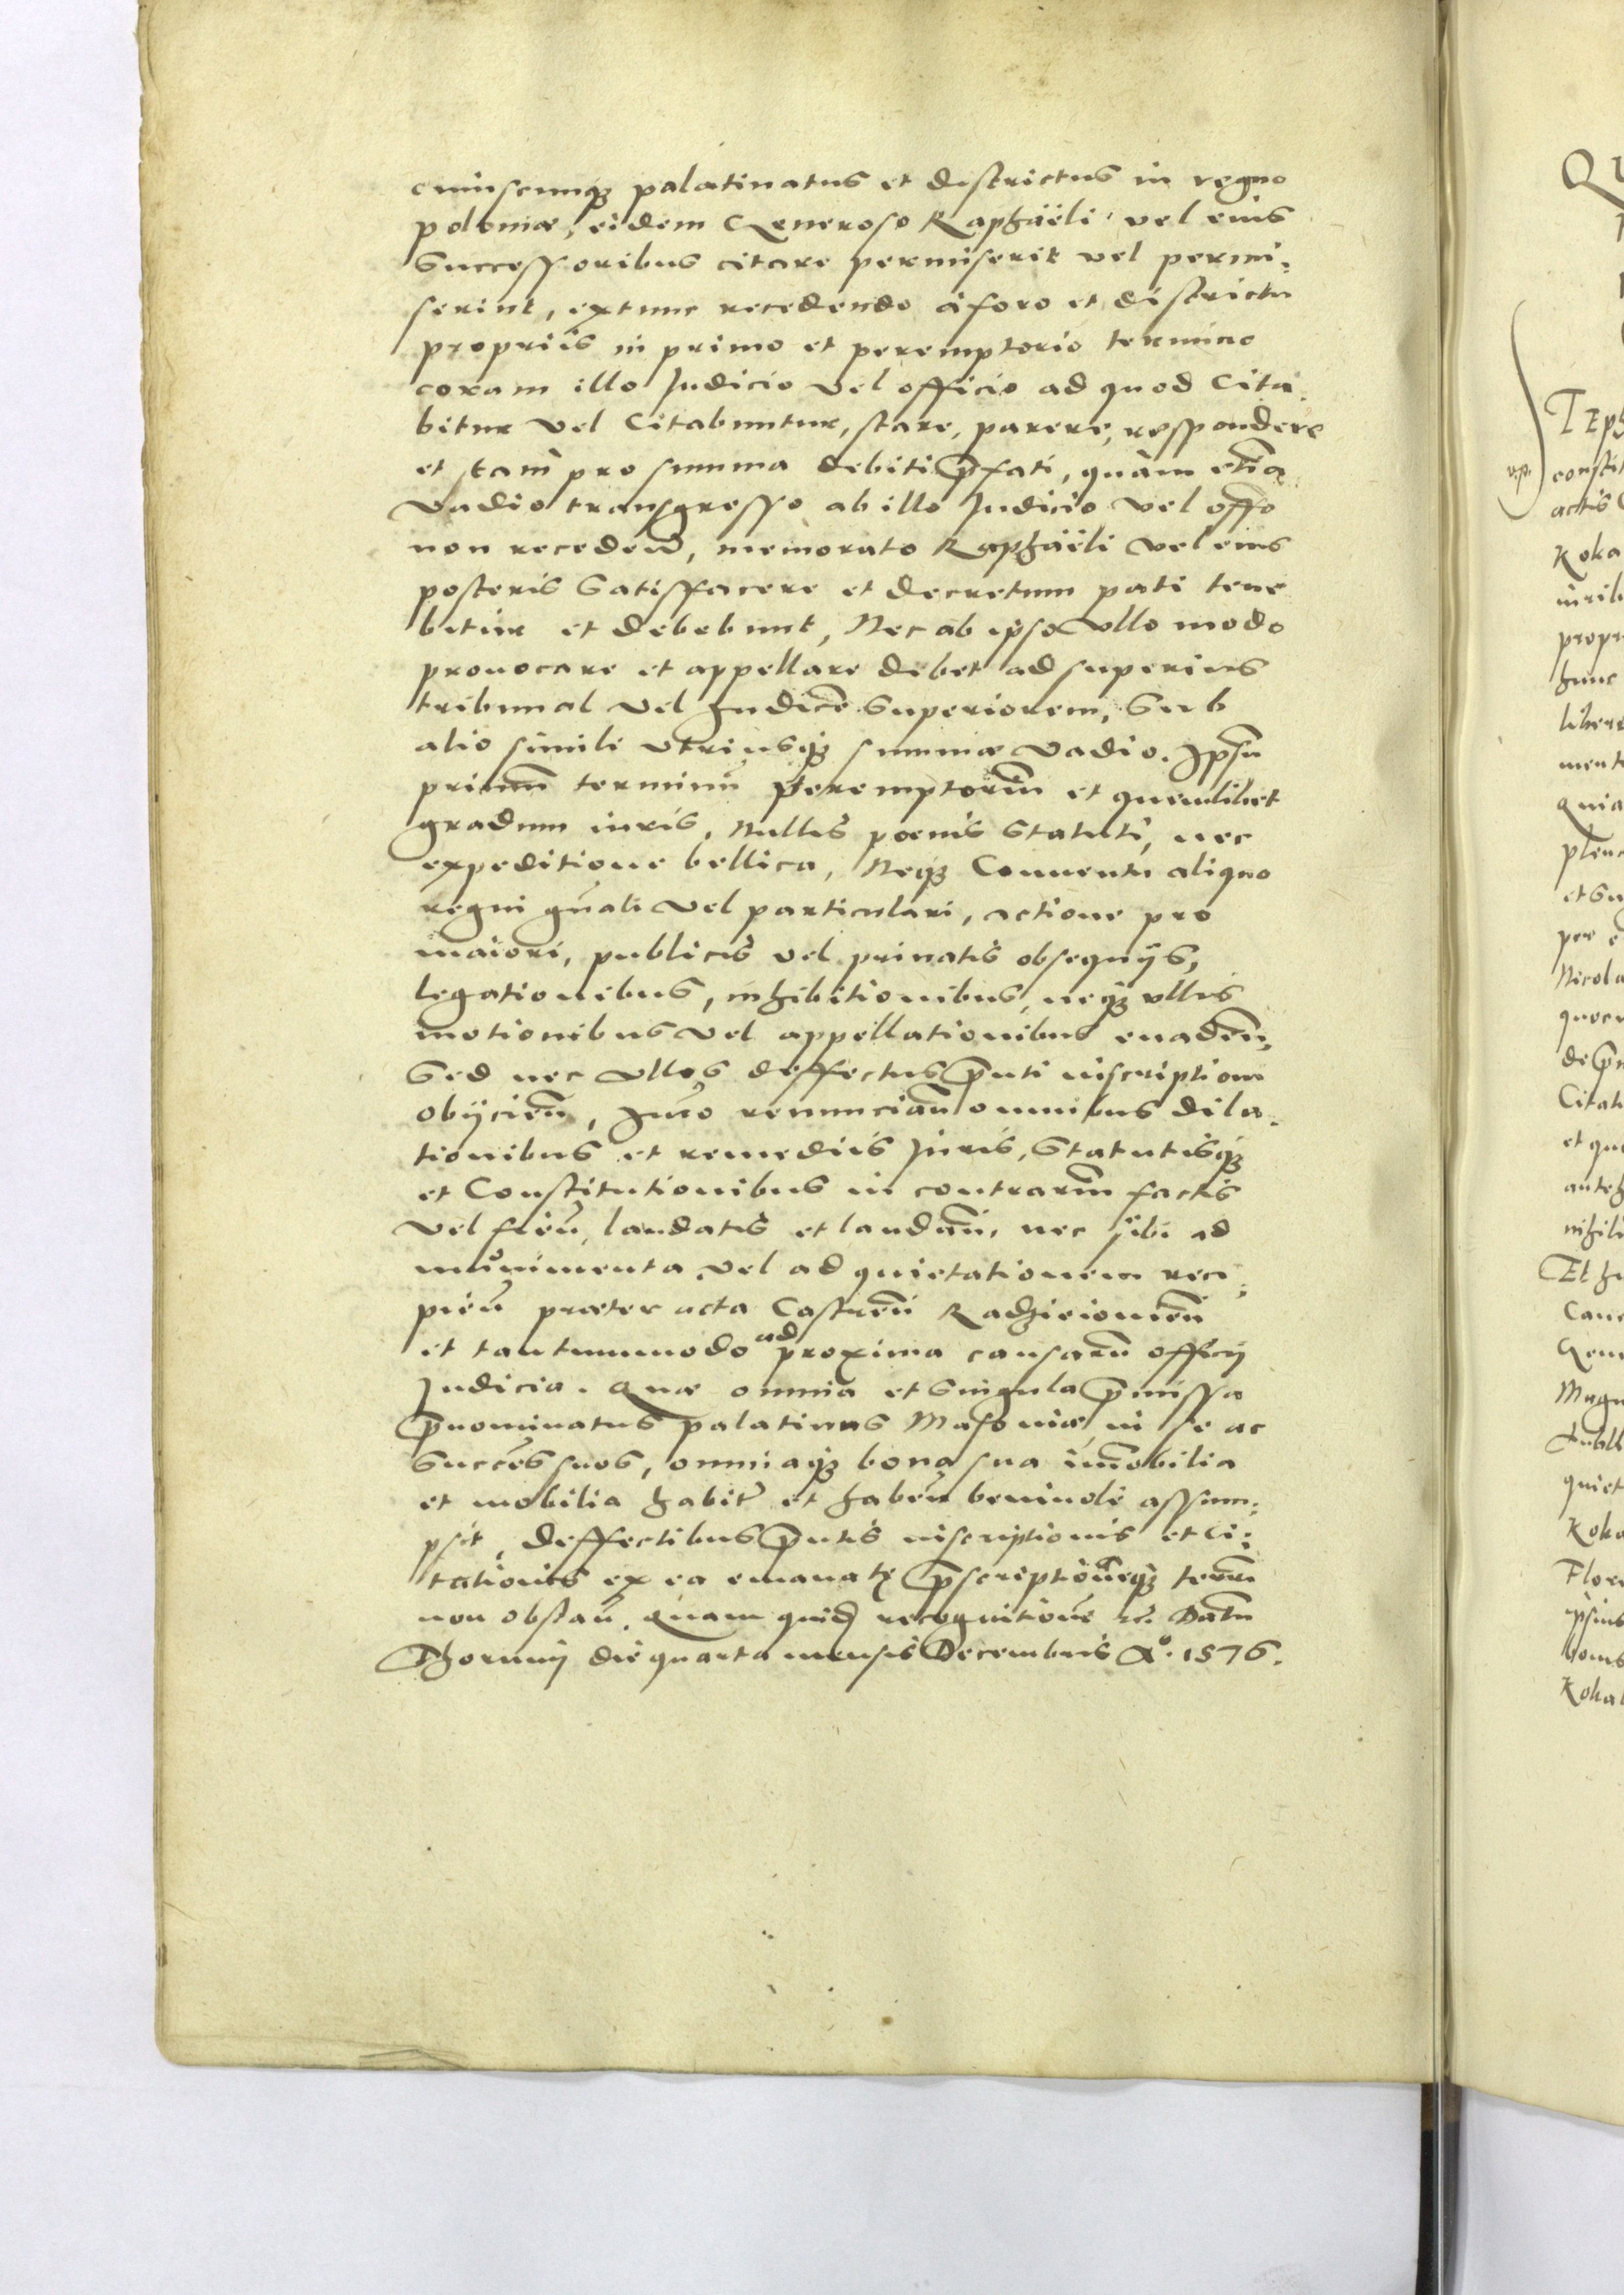 cuiuscunq3 palatinatus et districtus in regno
poloniæ, eidem Generoso Raphaëli vel eius
Successoribus citare permiserit vel permi:
serint, extunc recedendo à foro et districtu
propriis in primo et peremptorio termino
coram illo Judicio vel officio ad quod Cita
bitur vel Citabuntur, stare, parere, respondere
et tam pro summa debiti p̄fati, quàm etiā
vadio transgresso ab illo Judicio vel offo
non recedeñ, memorato Raphaëli vel eius
posteris Satisfacere et decretum pati tene
bitur et debebunt, Nec ab ipso vllo modo
prouocare et appellare debet ad superius
tribunal vel Judicē Superiorem, Sub
alio simili vtriusq3 summæ vadio. Ipsū
primū terminū peremptoriū et quemlibet
gradum iuris, Nullis poenis Statuti, nec
expeditione bellica, Neq3 Conuentu aliquo
regni gñali vel particulari, actione pro
maiori, publicis vel priuatis obsequijs,
legationibus, inhibitionibus, neq3 vllis
motionibus vel appellationibus euadeñ,
Sed nec vllos deffectus p̄nti inscriptioni
obijcieñ, Imo renunciañ omnibus dila
tionibus et remediis Juris, Statutisq3
et Constitutionibus in contrariū factis
vel fieñ, laudatis et laudañ, nec sibi ad
munimenta vel ad quietationem reci:
pieñ præter acta Castreñ Radzieiouieñ
et tantummodo ad proxima causarū officij
Judicia. Quæ omnia et Singula p̄missa
p̄nominatus palatinus Masouiæ in se ac
Succes̄ suos, omniaq3 bona sua im̄obilia
et mobilia habit et habeñ beniuole assum:
psit, deffectibus p̄ntis inscriptionis et Ci:
tationis ex ea emanatę p̄scriptioneq3 terrū
non obstañ. Quam quid recognitionē etc. Datū
Thorunij die quarta mensis Decembris Aº. 1576.
Koka
propr
hunc
quia
et Su
Nicola
Citati
et qu
Cane
quiet
Koko
Flori
ipsius
bonis